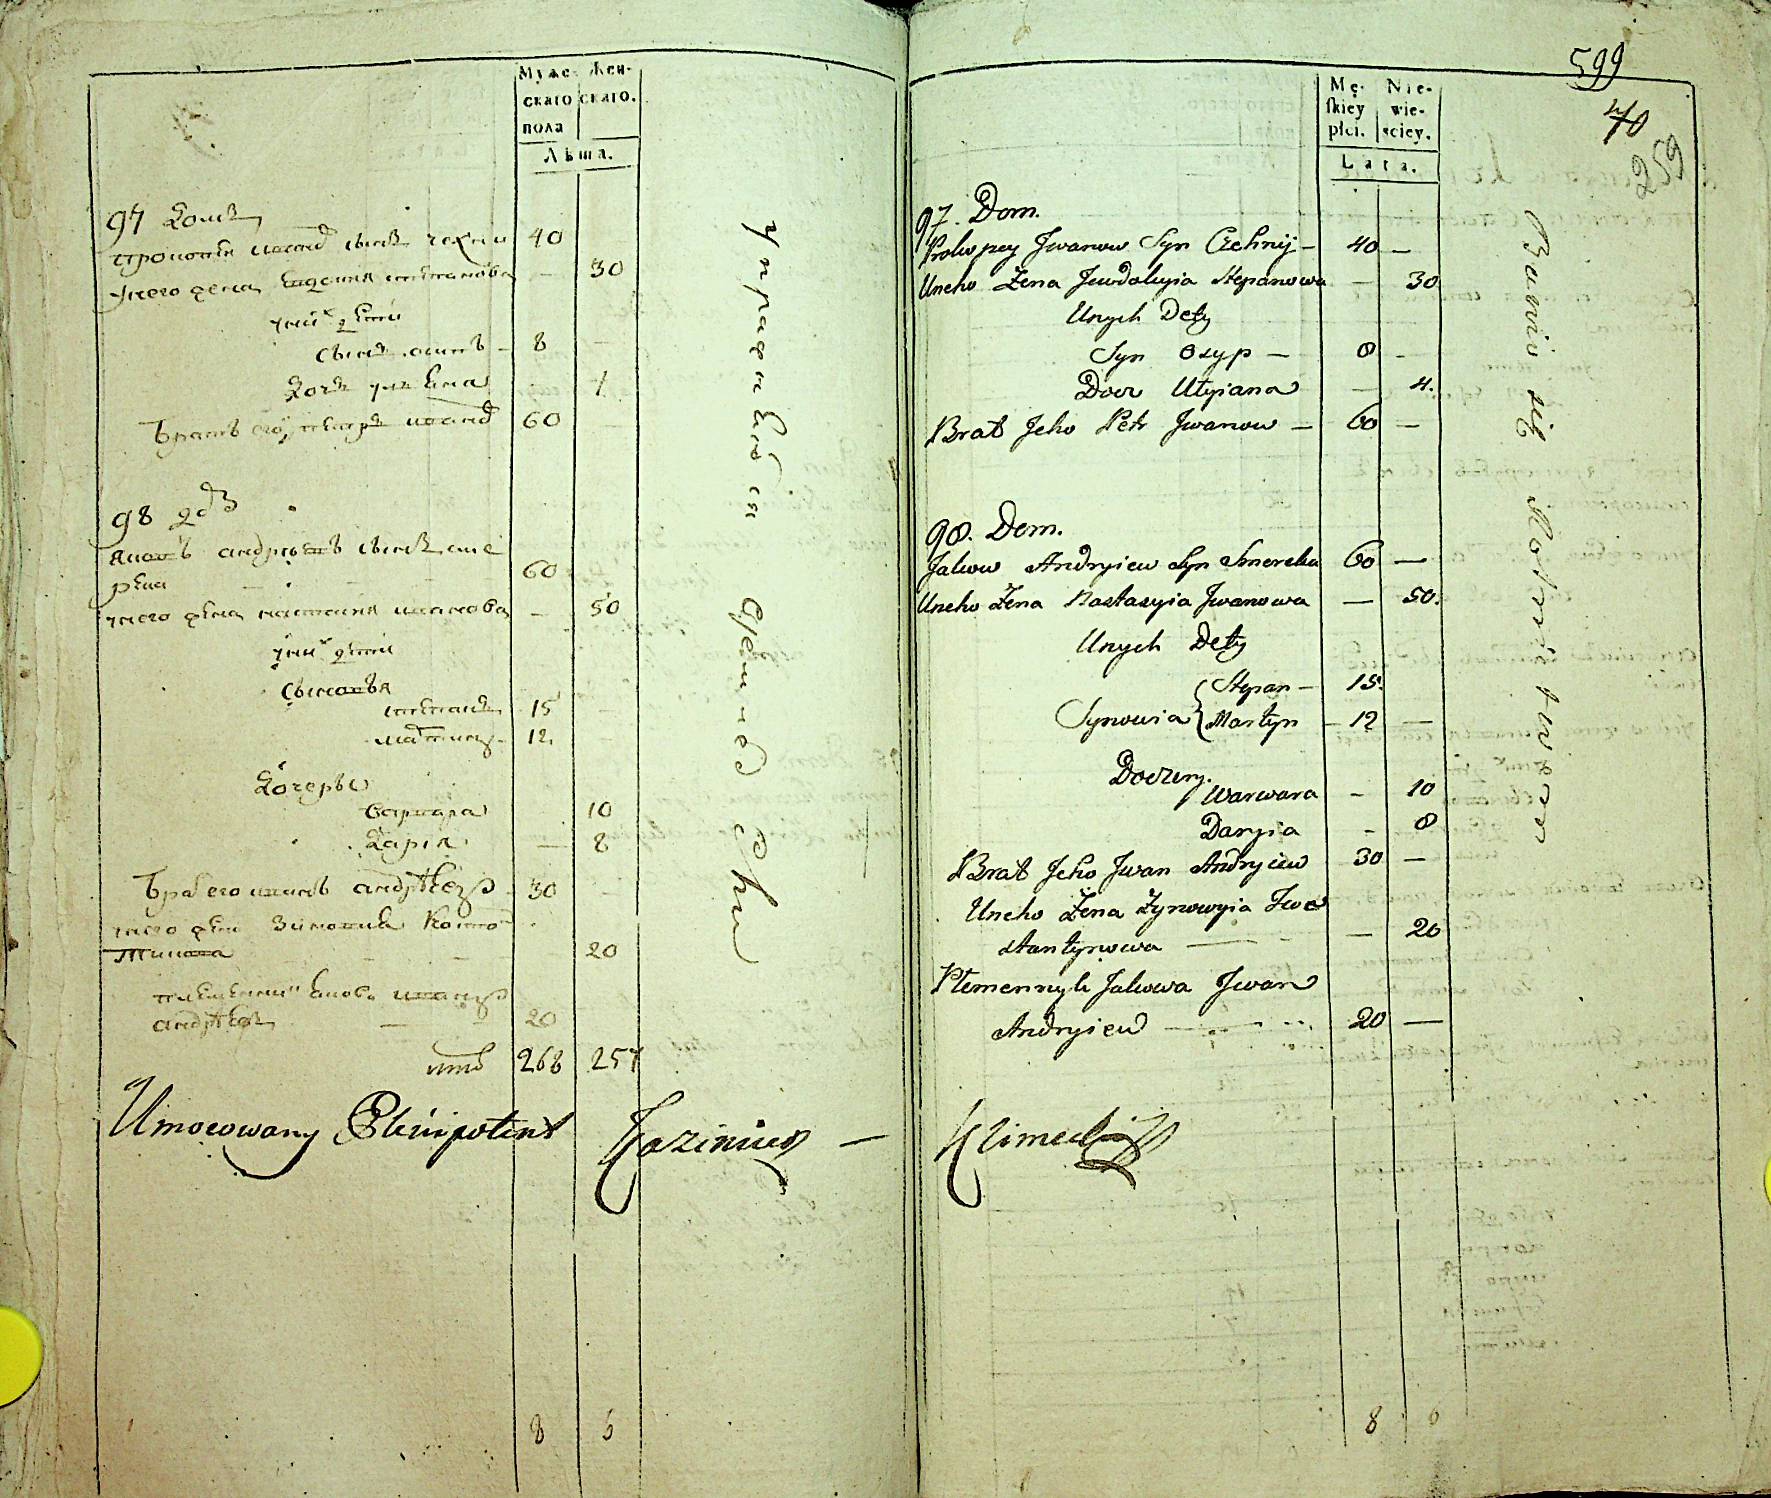 Муже-
скаго
пола
Жен-
скаго.
Лѣта.
97 домъ
прокопій иванов сынъ чехній 40 —
унего жена евдокія степанова — 30
уних дѣти
сынъ осипъ — 8 —
дочь улияна 4
братъ его петръ иванов 60 —
98 д
яковъ андрѣевъ сынъ сме
река 60
унего жена настасия иванова — 50
уних дѣти
сыновья
степанъ 15 —
мартинъ 12 —
дочеры
варвара 10
дария — 8
брат его иванъ андрѣевъ 30 —
унего жена зиновия конста
нтинова 20
племенник якова иванъ
андрѣевъ — 20
итого 268 257
упражняется
Umocowany Plenipotent Kazimierz — Klimecki
8 6
599
40
259
Mę-
skiey
płci.
Nie-
wie-
sciey.
Lata.
97. Dom.
Prokopey Jwanow Syn Czehnij — 40 —
Uneho Żena Jewdokyia Stepanowa — 30
Unych Dety
Syn Osyp — 8 —
Docz Ulyiana — 4.
Brat Jeho Petr Jwanow — 60 —
98. Dom.
Jakow Andryiew Syn Smereka 60 —
Uneho Żena Nastasyia Jwanowa — 50.
Unych Dety
Synowia { Stepan — 15.
Martyn — 12 —
Doczery.
Warwara — 10
Daryia — 8
Brat Jeho Jwan Andryiew 30 —
Uneho Żena Zynowyia Kon
stantynowa — — 20
Plemennyk Jakowa Jwan
Andryiew — 20 —
Bawio się Rolnictwem
8 6